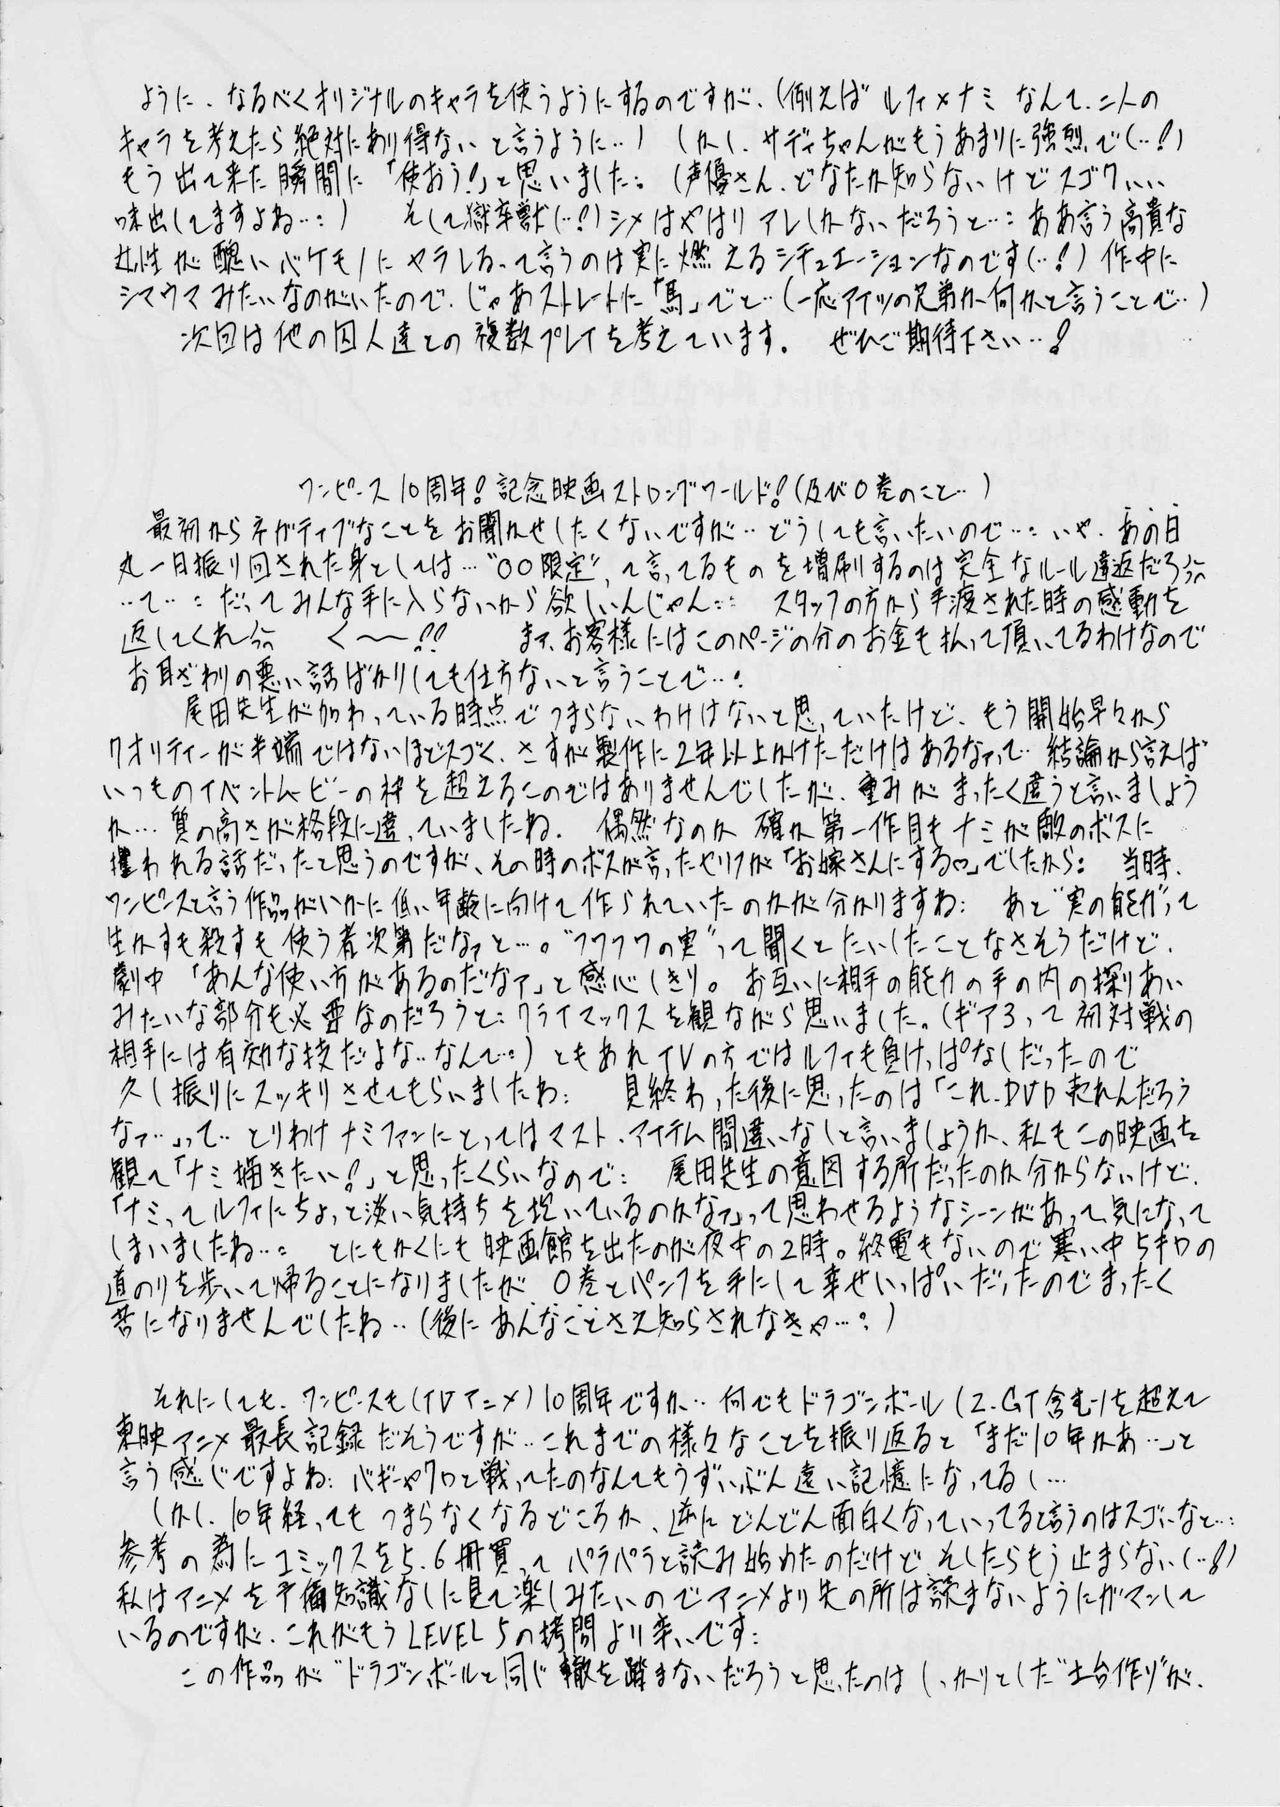 ように、なるべくオリジナルのキャラを使うようにするのですが、(例えば ルフィ×ナミ なんて、二人の
キャラを考えたら絶対にあり得ない と言うように‥) しかし、サディちゃんがもうあまりに強烈で(‥!)
もう出て来た瞬間に「使おう!」と思いました: (声優さん、どなたか知らないけどスゴクいい
味出してますよね‥:) そして獄卒獣(‥!)シメはやはりアレしかないだろうと‥: ああ言う高貴な
女性が醜いバケモノにヤラレるって言うのは実に燃えるシチュエーションなのです(‥!) 作中に
シマウマみたいなのがいたので、じゃあストレートに「馬」でと‥(一応アイツの兄弟か何かと言うことで‥)
次回は他の囚人達との複数プレイを考えています。 ぜひご期待下さい‥!
ワンピース10周年!記念映画ストロングワールド!(及び0巻のこと‥)
最初からネガティブなことをお聞かせしたくないですが‥どうしても言いたいので‥: いや、あの日
丸一日振り回された身としては…"○○限定"、って言ってるものを増刷するのは完全なルール違反だろ
‥て‥: だってみんな手に入らないから欲しいんじゃん:: スタッフの方から手渡された時の感動を
返してくれ く〜〜!! まァ、お客様にはこのページの分のお金も払って頂いてるわけなので
お耳ざわりの悪い話ばかりしても仕方ないと言うことで‥:
尾田先生が加わっている時点でつまらないわけはないと思っていたけど、もう開始早々から
クオリティーが半端ではないほどスゴく、さすが製作に2年以上かけただけはあるなァって‥ 結論から言えば
いつものイベントムービーの枠を超えるものではありませんでしたが、重みがまったく違うと言いましょう
か…質の高さが格段に違っていましたね. 偶然なのか 確か第一作目もナミが敵のボスに
攫われる話だったと思うのですが、その時のボスが言ったセリフが「お嫁さんにする♡」でしたから: 当時、
ワンピースと言う作品がいかに低い年齢に向けて作られていたのかが分かりますね: あと"実の能力"って
生かすも殺すも使う者次第だなァと…。"フワフワの実"って聞くとたいしたことなさそうだけど、
劇中「あんな使い方があるのだなァ」と感心しきり。 お互いに相手の能力の手の内の探りあい
みたいな部分も必要なのだろうと: クライマックスを観ながら思いました。(ギア3って初対戦の
相手には有効な技だよな‥なんて:) ともあれTVの方ではルフィも負けっぱなしだったので
久し振りにスッキリさせてもらいましたわ: 見終わった後に思ったのは「これ、DVD売れんだろう
なァ‥」って‥とりわけナミファンにとってはマスト・アイテム間違いなしと言いましょうか、私もこの映画を
観て「ナミ描きたい!」と思ったくらいなので: 尾田先生の意図する所だったのか分からないけど、
「ナミってルフィにちょっと淡い気持ちを抱いているのかなァ」って思わせるようなシーンがあって、気になって
しまいましたね‥: とにもかくにも映画館を出たのが夜中の2時。終電もないので寒い中5キロの
道のりを歩いて帰ることになりましたが、0巻とパンフを手にして幸せいっぱいだったのでまったく
苦になりませんでしたね‥(後にあんなことさえ知らされなきゃ…:)
それにしても、ワンピースも(TVアニメ)10周年ですか‥何でもドラゴンボール(Z、GT含む)を超えて
東映アニメ最長記録だそうですが‥これまでの様々なことを振り返ると「まだ10年かあ…」と
言う感じですよね: バギーやクロと戦ってたのなんてもうずいぶん遠い記憶になってるし…
しかし、10年経ってもつまらなくなるどころか、逆にどんどん面白くなっていってると言うのはスゴいなと‥:
参考の為にコミックスを5、6冊買ってパラパラと読み始めたのだけど そしたらもう止まらない(‥!)
私はアニメを予備知識なしに見て楽しみたいのでアニメより先の所は読まないようにガマンして
いるのですが、これがもうLEVEL5の拷問より辛いです:
この作品が"ドラゴンボールと同じ轍を踏まないだろうと思ったのは しっかりとした"土台作り"が、